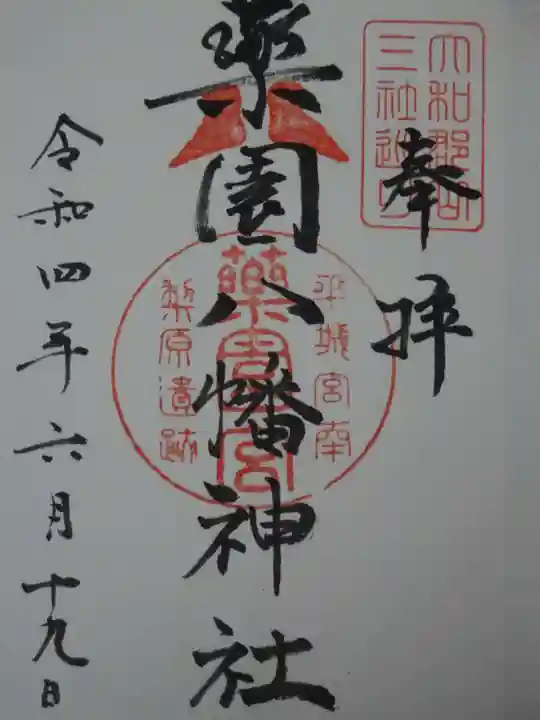 大和郡山
三社巡り
奉拝
薬園八幡神社
平城宮南
薬園宮
梨原遺跡
令和四年六月十九日